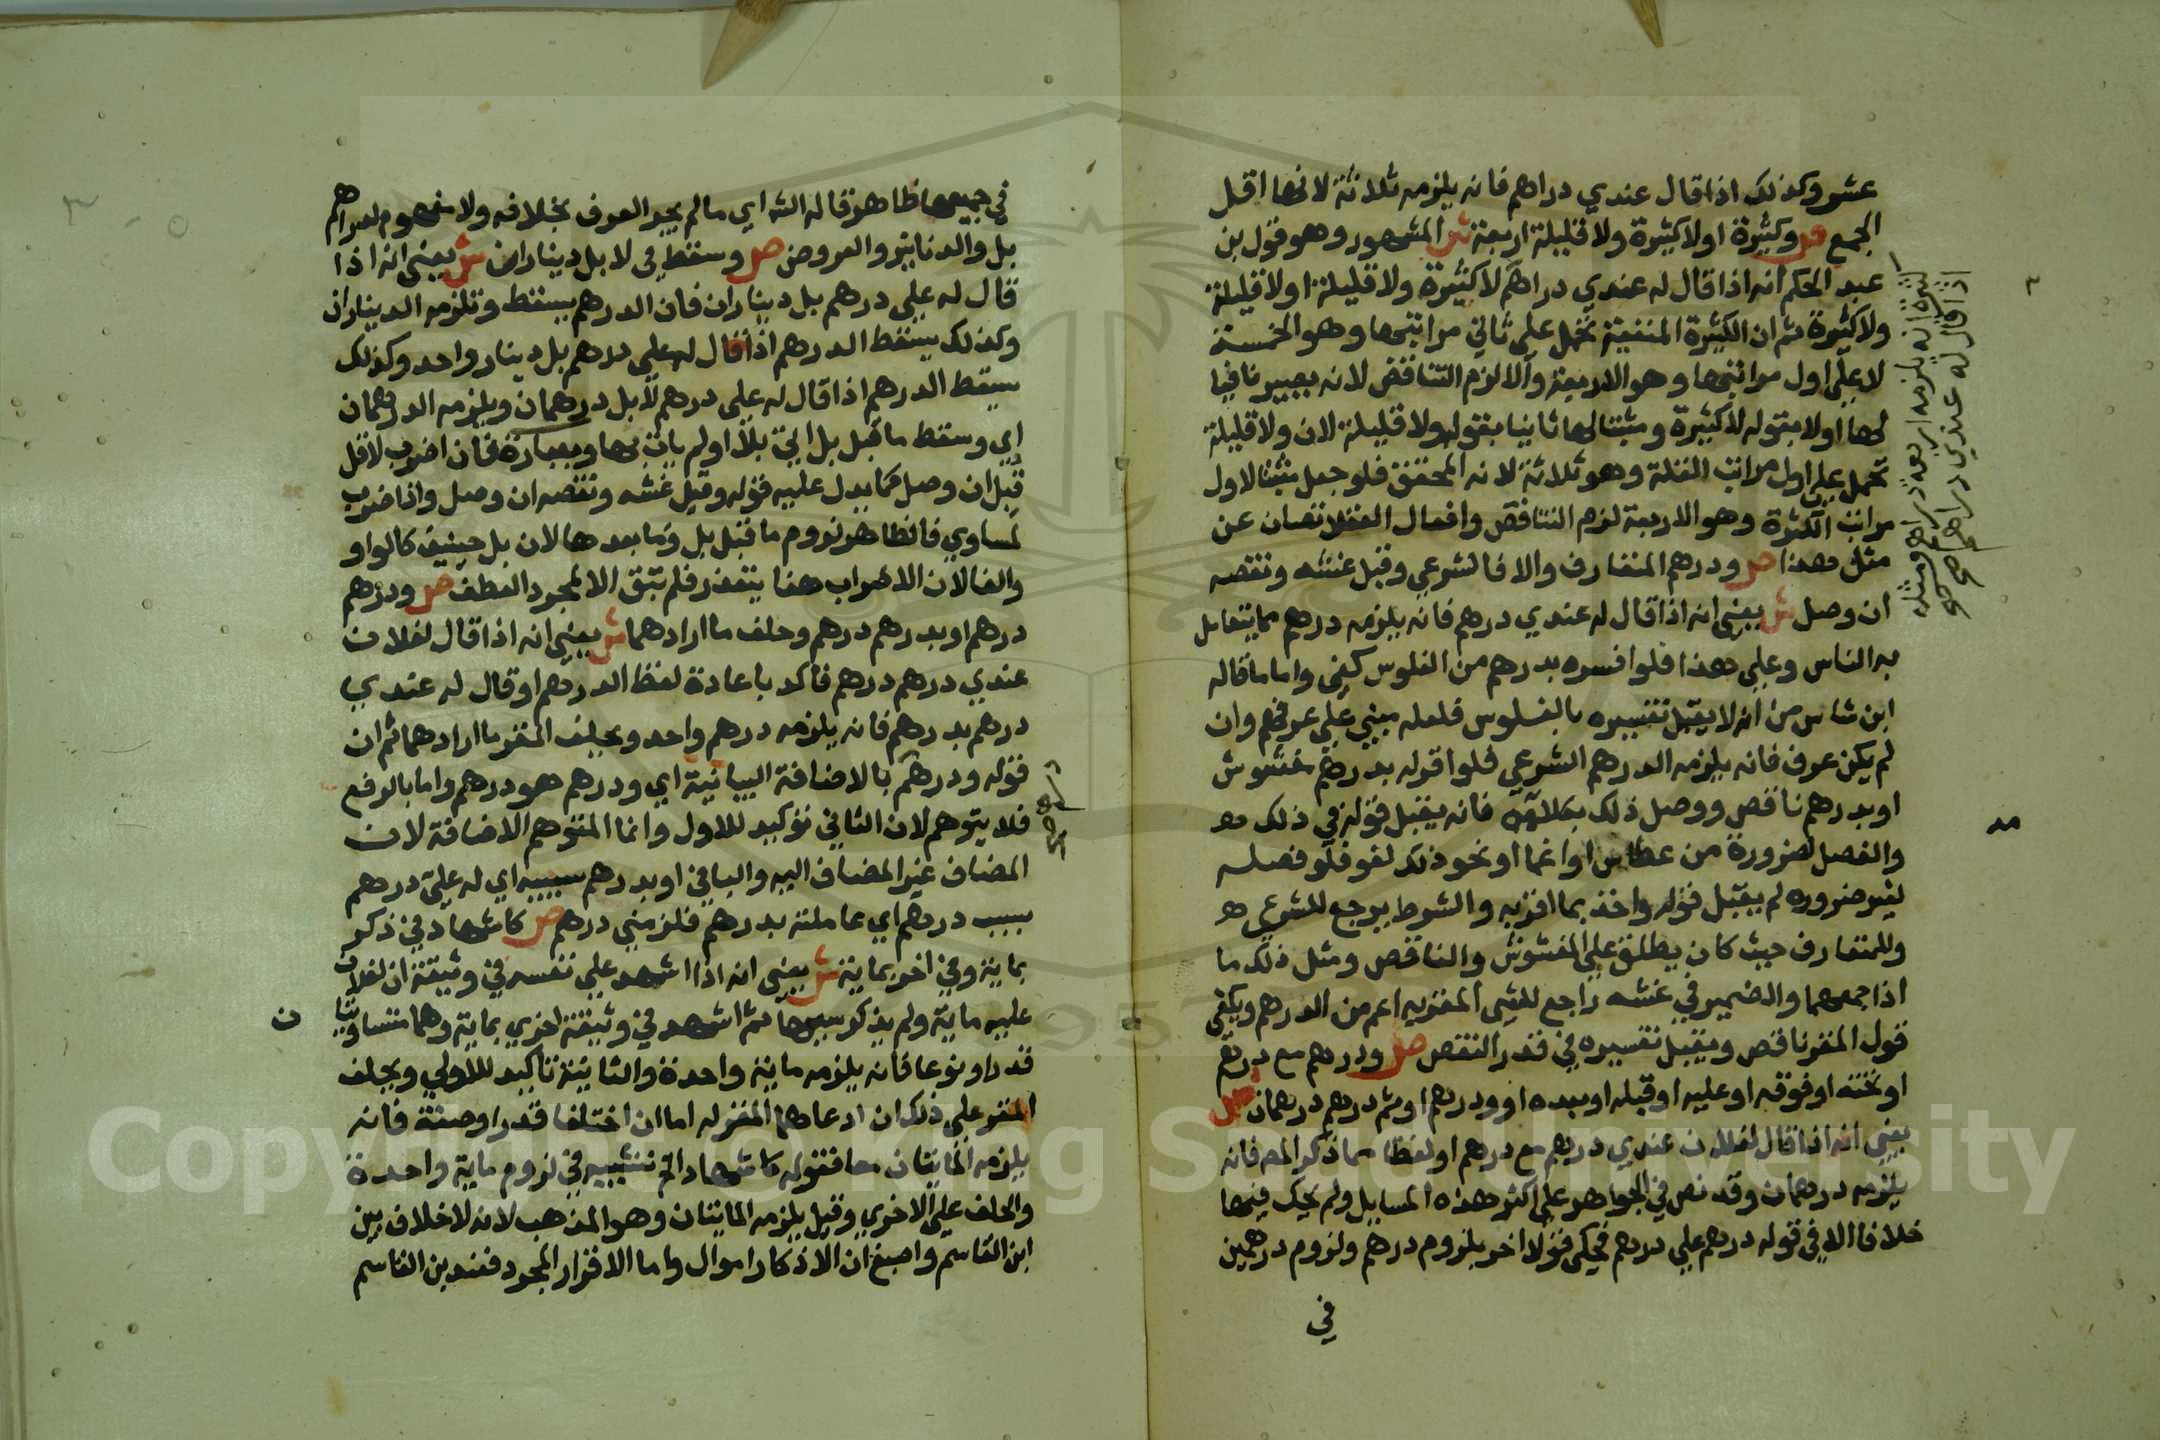 عشر وكذلك اذا قال عندي دراهم فانه يلزمه ثلاثة لانها اقل
الجمع ص وكثيرة او لا كثيرة ولا قليلة اربعة ش المشهور وهو قول بن
عبد الحكم انه اذا قال له عندي دراهم لا كثيرة ولا قليلة او لا قليلة
ولا كثيرة ثم ان الكثيرة المنفية تحمل على ثاني مراتبها وهو الخمسة
لا على اول مراتبها وهو الاربعة والا لزم التناقض لانه يصير نافيا
لها اولا بقوله لا كثيرة ومثبتا لها ثانيا بقوله ولا قليلة لان ولا قليلة
تحمل على اول مراتب القلة وهو ثلاثة لانه المحقق فلو جعل مثبتا لاول
مراتب الكثرة وهو الاربعة لزم التناقض وافعال العقلا تصان عن
مثل هذا ص ودرهم المتعارف والا فالشرعي وقبل غشه ونقصه
ان وصل ش يعني انه اذا قال له عندي درهم فانه يلزمه درهم مما يتعامل
به الناس وعلى هذا فلو افسره بدرهم من الفلوس كفى واما ما قاله
ابن شاس من انه لا يقبل تفسيره بالفلوس فلعله مبني على عرفهم وان
لم يكن عرف فانه يلزمه الدرهم الشرعي فلو اقوله بدرهم مغشوش
او بدرهم ناقص ووصل ذلك بكلامه فانه يقبل قوله في ذلك
والفصل لضرورة من عطاس او اغما او نحو ذلك لغو فلو فصله
لغير ضروره لم يقبل قوله واخذ بما اقر به والشرط يرجع للشرعي
وللمتعارف حيث كان يطلق على المغشوش والناقص ومثل ذلك ما
اذا جمعهما والضمير في غشه راجع للشي المقر به اعم من الدرهم ويكفي
قول المقر ناقص ويقبل تفسيره في قدر النقص ص ودرهم مع درهم
او تحته او فوقه او عليه او قبله او بعده او ودرهم او ثم درهم درهمان
يعني انه اذا قال لفلان عندي درهم مع درهم او لفظا مما ذكر المص فانه
يلزمه درهمان وقد نص في الجواهر على اكثر هذه المسايل ولم يحك فيها
خلافا الا في قوله درهم على درهم فحكى قولا اخر بلزوم درهم ولزوم درهمين
في
اذا قال له عندي دراهم
لثرة انه يلزمه اربعة دراهم ومثله
في جميعها ظاهر قاله الش اي ما لم يجر العرف بخلافه ولا مفهوم لدراهم
بل والدنانير والعروض ص وسقط في لا بل ديناران ش يعني انه اذا
قال له علي درهم بل ديناران فان الدرهم يسقط وتلزمه الديناران
وكذلك يسقط الدرهم اذا قال له علي درهم بل دينار واحد وكذلك
يسقط الدرهم اذا قال له علي درهم لا بل درهمان ويلزمه الدرهمان
اي وسقط ما قبل بل اتى بلا او لم يات بها وبعبارة فان اضرب لاقل
قبل ان وصل كما يدل عليه قوله وقبل غشه ونقصه ان وصل واذا ضرب
لمساوي فالظاهر لزوم ما قبل بل وما بعدها لان بل حينيذ كالواو
والفا لان الاضراب هنا يتعذر فلم تبق الا لمجرد العطف ص ودرهم
درهم او بدرهم درهم وحلف ما ارادهما ش يعني انه اذا قال لفلان
عندي درهم درهم فاكد باعادة لفظ الدرهم او قال له عندي
درهم بدرهم فانه يلزمه درهم واحد ويحلف المقر ما ارادهما ثم ان
قوله ودرهم بالاضافة البيانية اي ودرهم هو درهم واما بالرفع
فلا يتوهم لان الثاني توكيد للاول وانما المتوهم الاضافة لان
المضاف غير المضاف اليه والبا في او بدرهم سببيه اي له علي درهم
بسبب درهم اي عاملته بدرهم فلزمني درهم ص كاشهاد في ذكر
بماية وفي اخر بماية ش يعني انه اذا اشهد على نفسه في وثيقة ان لفلان
عليه ماية ولم يذكر سببها ثم اشهد في وثيقة اخري بماية وهما متساويتان
قدرا ونوعا فانه يلزمه ماية واحدة والثانية تاكيد للاولي ويحلف
المقر على ذلك ان ادعاهما المقر له اما ان اختلفا قدرا وصفة فانه
يلزمه المايتان معا فقوله كاشهاد الخ تشبيه في لزوم ماية واحدة
والحلف على الاخري وقيل يلزمه المايتان وهو المذهب لانه لا خلاف بين
ابن القاسم واصبغ ان الاذكار اموال واما الاقرار المجرد فعند بن القاسم
Copyright © King Saud University
1957